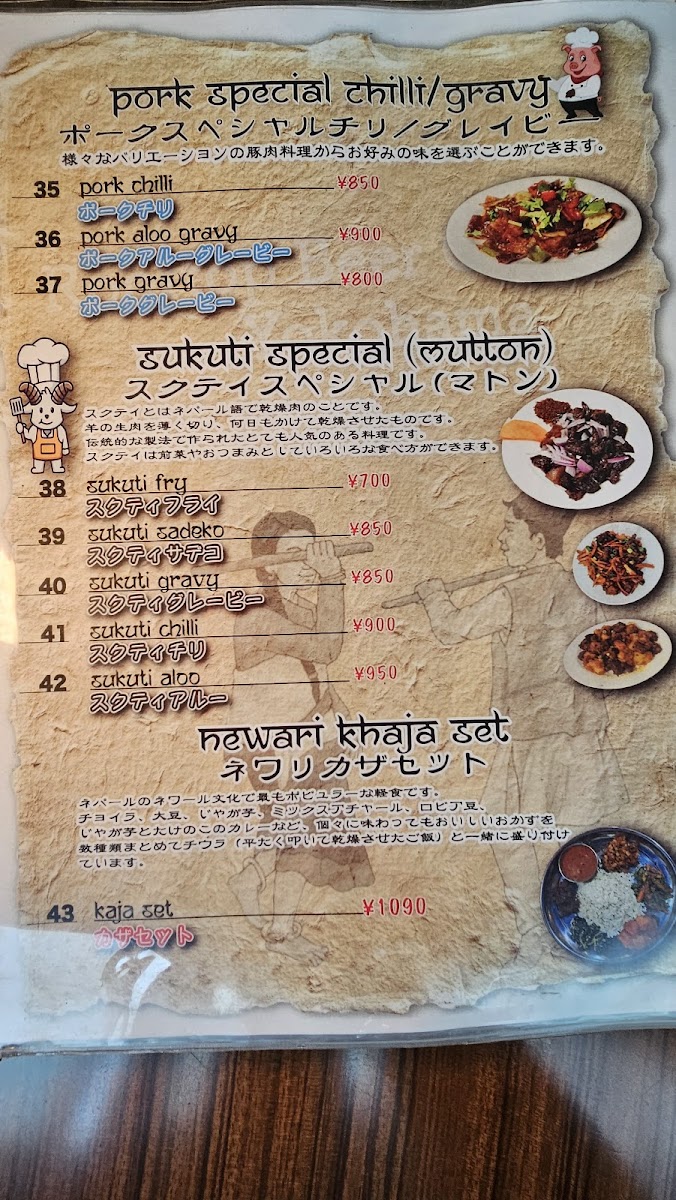 Pork Special Chilli/Gravy
ポークスペシャルチリ/グレイビー
様々なバリエーションの豚肉料理からお好みの味を選ぶことができます。
35 Pork Chilli ¥850
ポークチリ
36 Pork Aloo Gravy ¥900
ポークアルーグレービー
37 Pork Gravy ¥800
ポークグレービー
Yokohama
Sukuti Special (Mutton)
スクテイスペシャル(マトン)
スクテイとはネパール語で乾燥肉のことです。
羊の生肉を薄く切り、何日もかけて乾燥させたものです。
伝統的な製法で作られたとても人気のある料理です。
スクテイは前菜やおつまみとしていろいろな食べ方ができます。
38 Sukuti Fry ¥700
スクティフライ
39 Sukuti Sadeko ¥850
スクティサデコ
40 Sukuti Gravy ¥850
スクティグレービー
41 Sukuti Chilli ¥900
スクティチリ
42 Sukuti Aloo ¥950
スクティアルー
Newari Khaja Set
ネワリカザセット
ネパールのネワール文化で最もポピュラーな軽食です。
チョイラ、大豆、じゃが芋、ミックスアチャール、ロビア豆、
じゃが芋とたけのこのカレーなど、個々に味わってもおいしいおかずを
数種類まとめてチウラ（平たく叩いて乾燥させたご飯）と一緒に盛り付け
ています。
43 Kaja Set ¥1090
カザセット